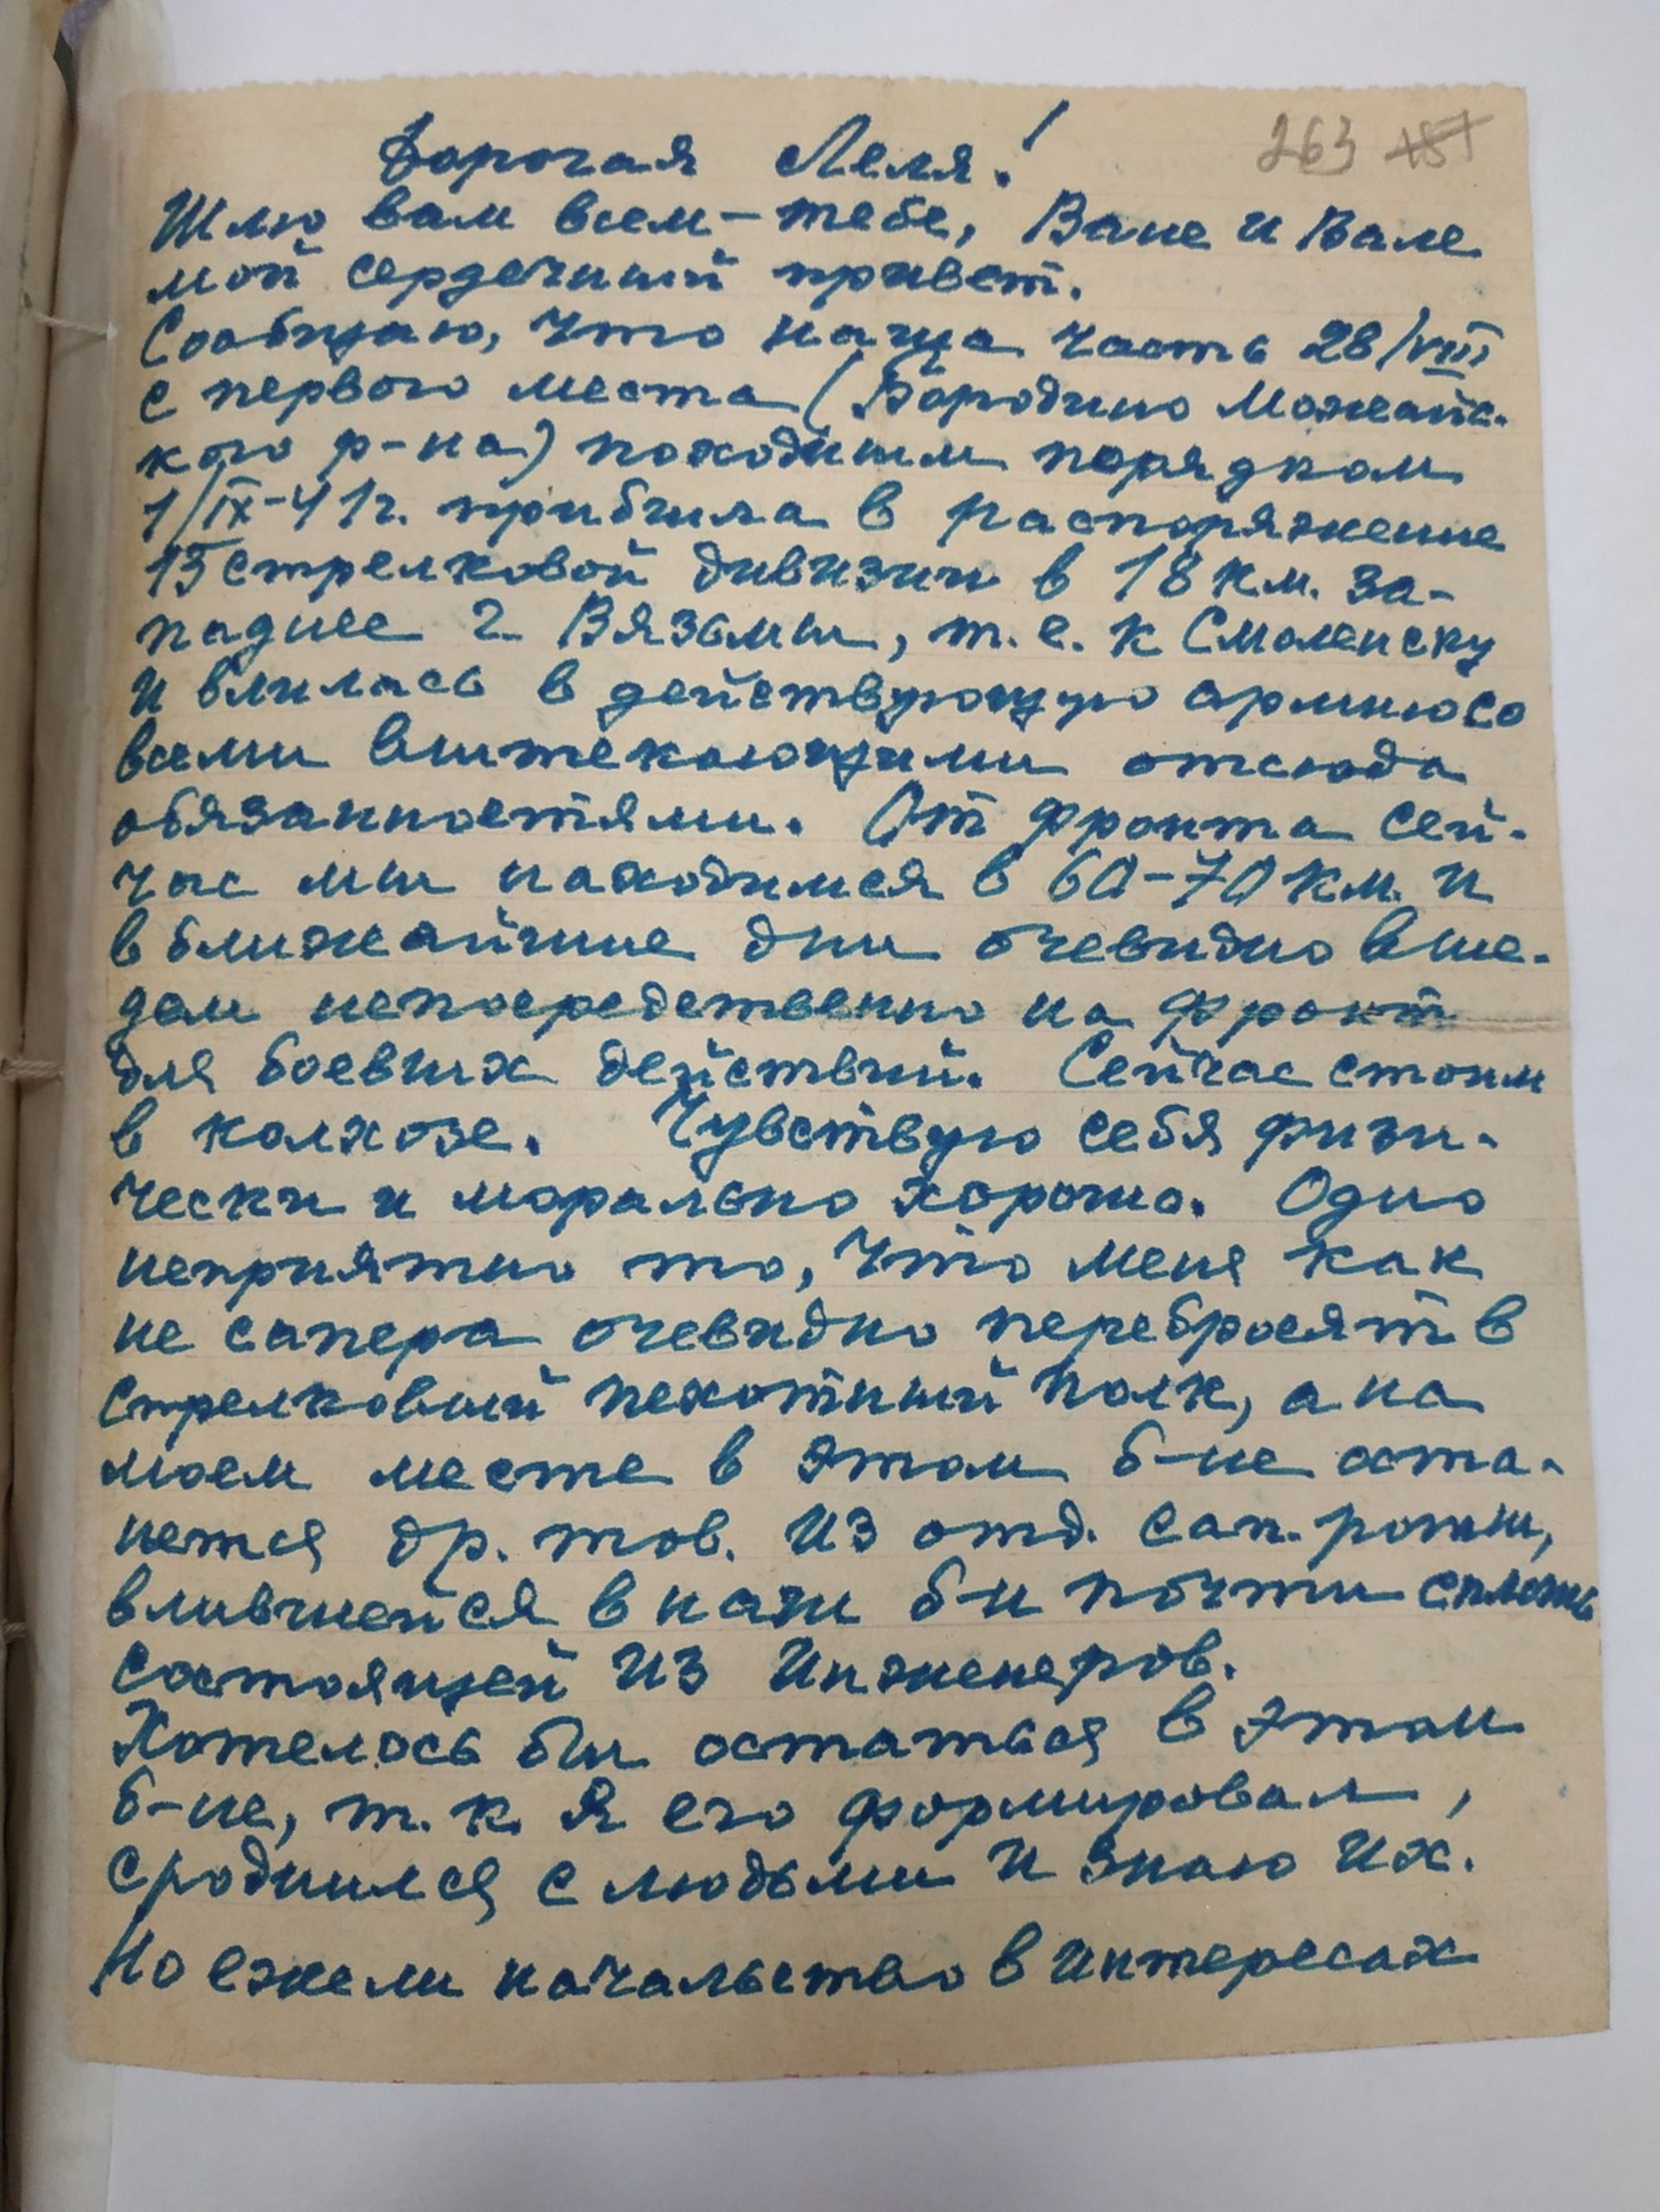 263 157
Дорогая Леля!
Шлю вам всем – тебе, Ване и Вале
мой сердечный привет.
Сообщаю, что наша часть 28/VIII
с первого места (Бородино Можайс-
кого р-на) походным порядком
1/IX-41г. прибыла в распоряжение
13 стрелковой дивизии в 18 км. за-
паднее г. Вязьмы, т. е. к Смоленску
и влилась в действующую армию со
всеми вытекающими отсюда
обязанностями. От фронта сей-
час мы находимся в 60-70 км. и
в ближайшие дни очевидно вые-
дем непосредственно на фронт
для боевых действий. Сейчас стоим
в колхозе. Чувствую себя физи-
чески и морально хорошо. Одно
неприятно то, что меня как
не сапера очевидно перебросят в
стрелковый пехотный полк, а на
моем месте в этом б-не оста-
нется др. тов. из отд. сап. роты,
влившейся в наш б-н почти сплошь
состоящей из инженеров.
Хотелось бы остаться в этом
б-не, т. к. я его формировал,
сроднился с людьми и знаю их.
Но ежели начальство в интересах